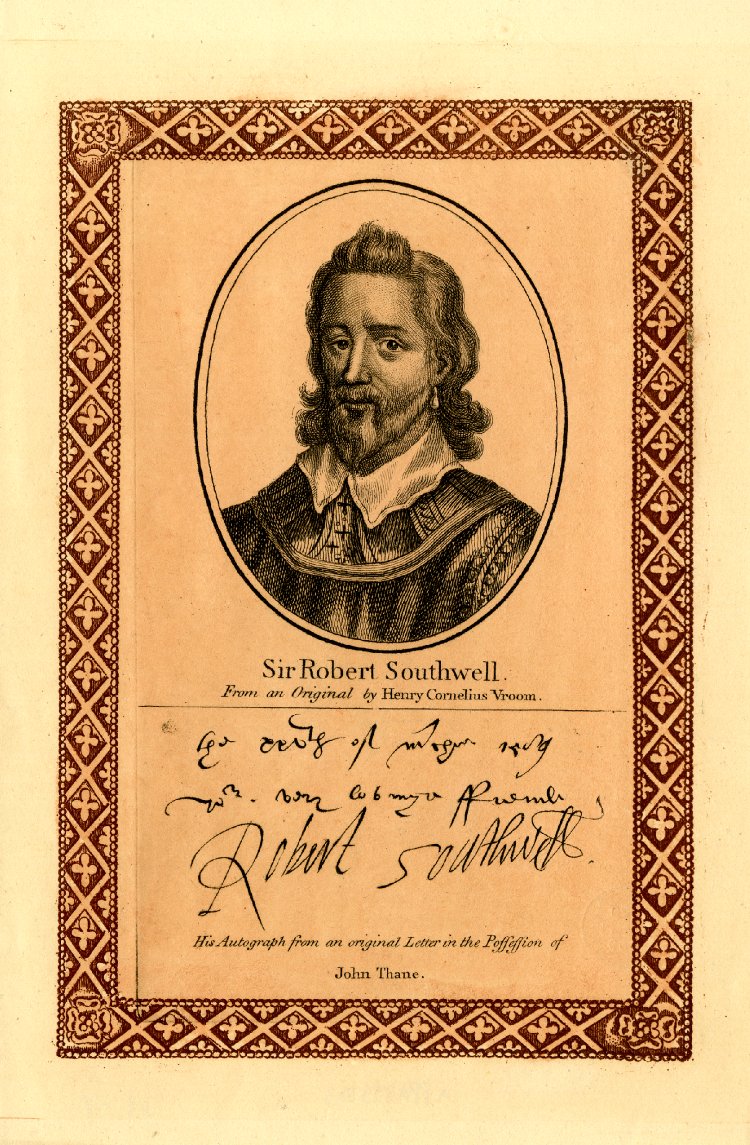 Sir Robert Southwell.
From an Original by Henry Cornelius Vroom.
the xxvth of
yor. very lovinge ffreinde
Robert Southwell.
His Autograph from an original Letter in the Poſſeſſion of
John Thane.